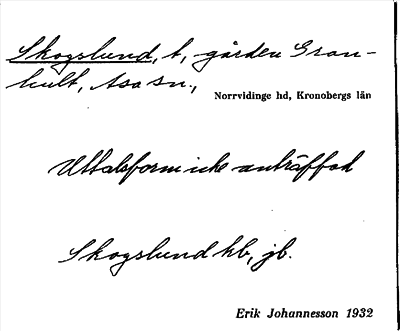 Skogslund, t, gården Gran-
hult, Asa sn.,
Norrvidinge hd, Kronobergs län
Uttalsform icke anträffad
Skogslund kb, jb.
Erik Johannesson 1932